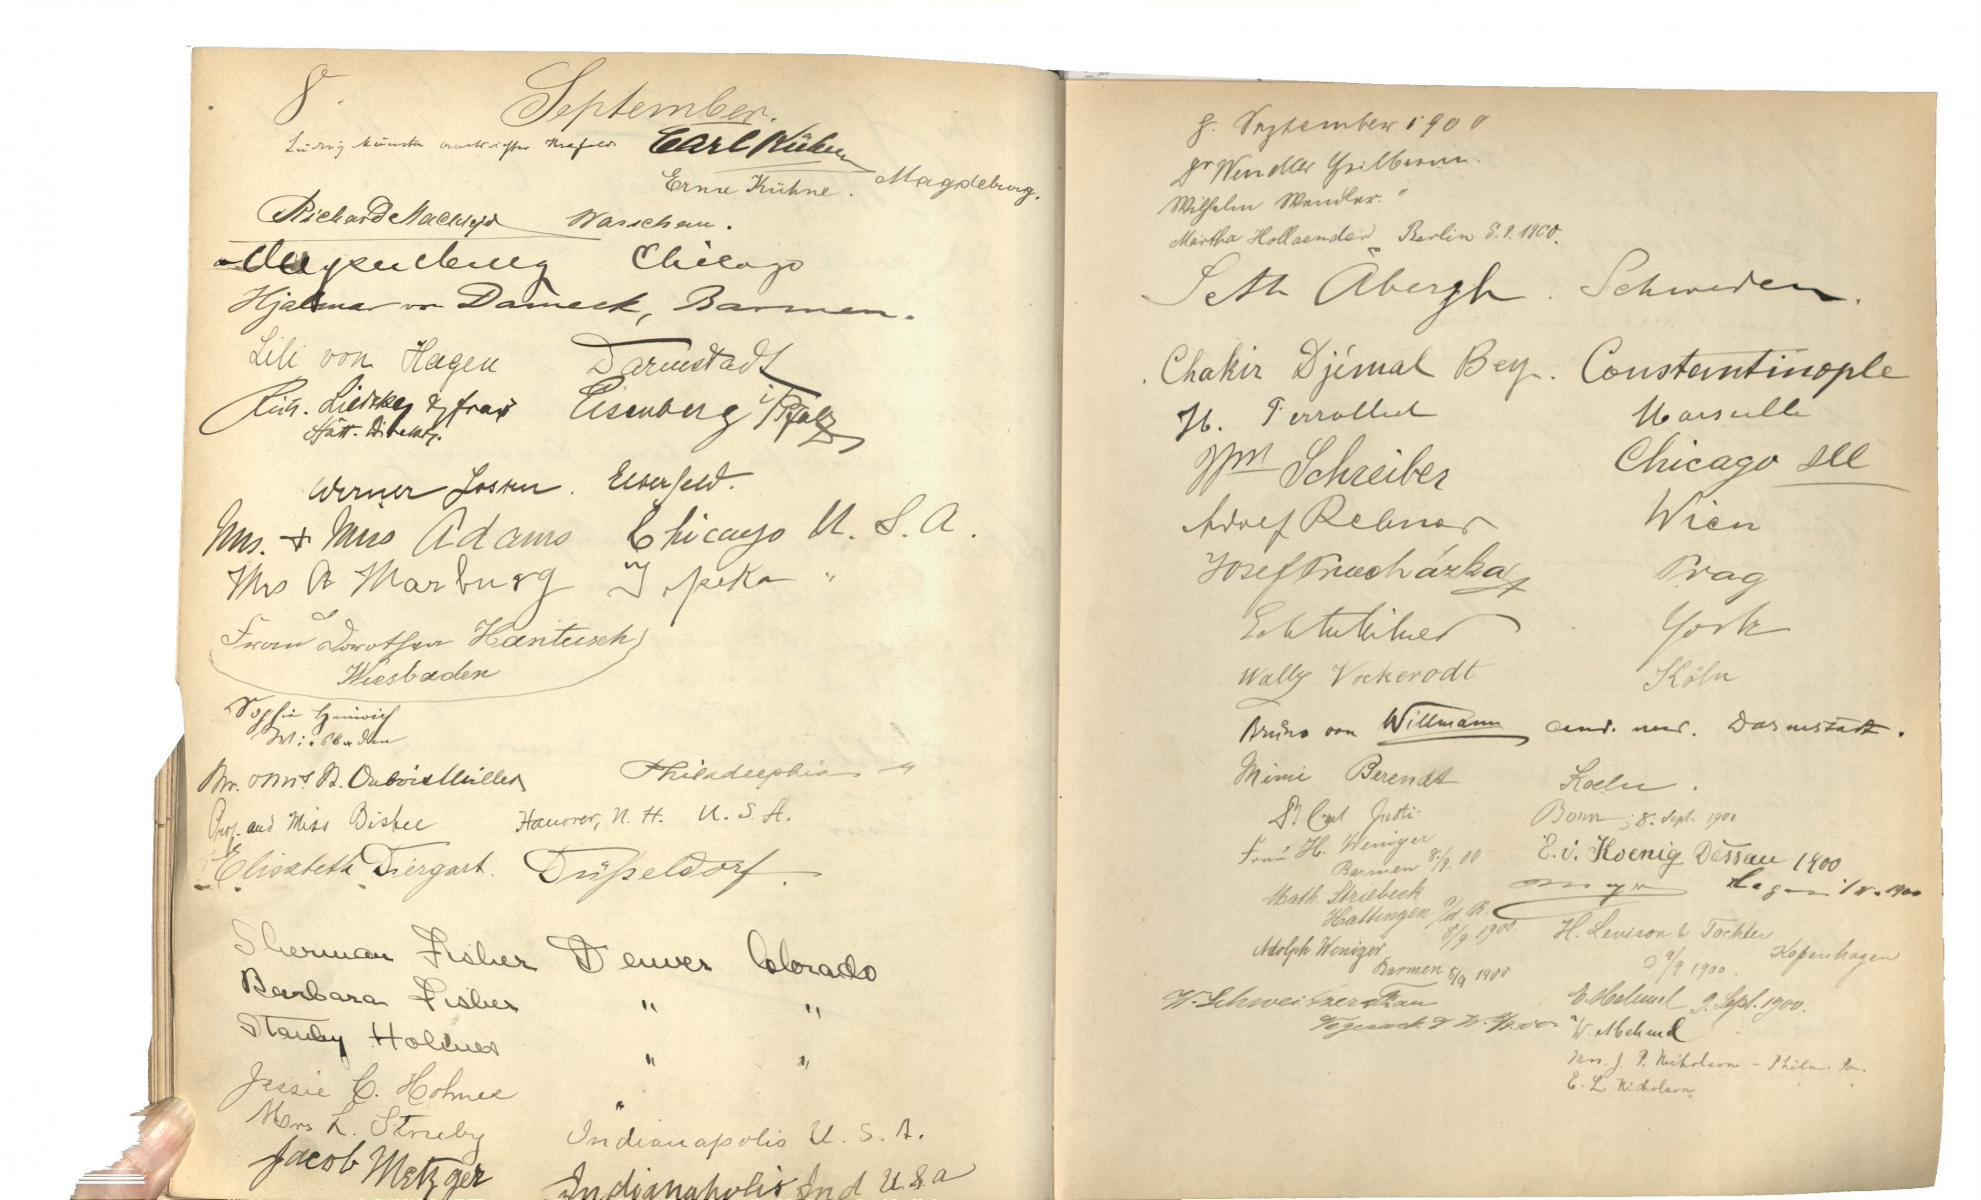 8. September.
Carl Kühne
Erna Kühne. Magdeburg.
Richard Warschau.
Chicago
Hjalmar von Dameck, Barmen.
Lili von Hagen Darmstadt
Eisenberg i/Pfalz
Werner Elberfeld.
Mrs. + Miss Adams Chicago U.S.A.
Mrs A Marburg Topeka "
Frau Dorothea Hantusch
Wiesbaden
Sophie Heinrich
Wiesbaden
Mr. Müller Philadelphia "
Prof. and Miss Bisbee Hanover, N.H. U.S.A.
Elisabeth Diergart. Düsseldorf.
Sherman Fisher Denver Colorado
Barbara Fisher " "
Stanley Holmes " "
Jessie C. Holmes "
Mrs L. Strueby Indianapolis U.S.A.
Jacob Metzger Indianapolis Ind U.S.a
8. September 1900
Dr Wendler
Wilhelm Wendler. "
Martha Hollaender Berlin 8.9.1900.
Seth Åbergh. Schweden.
Chakir Djémal Bey. Constantinople
H. Marseille
Wm Schreiber Chicago Ill
Adolf Rebner Wien
Josef Procházka Prag
York
Wally Vockerodt Köln
Bruno von Willmann cand. med. Darmstadt.
Mimi Berendt Koeln.
Dr Carl Justi Bonn, 8. Sept. 1900
Frau H. Weniger
Barmen 8/9 00
E. v. Koenig Dessau 1900
Math. Striebeck
Hattingen a/d R.
8/9 1900
Hagen 1900
Adolph Weniger
Barmen 8/9 1900
H. Levison & Tochter
Kopenhagen
d 9/9 1900.
W. Schweitzer & Frau
Vegesack
E. Mehmel 9. Sept. 1900.
W. Mehmel
Mrs. J. P. Nicholson - Phila. Pa.
E. L. Nicholson